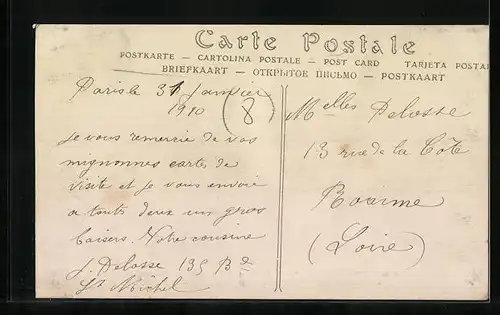 Carte Postale
POSTKARTE — CARTOLINA POSTALE — POST CARD TARJETA POSTAL
BRIEFKAART — ОТКРЫТОЕ ПИСЬМО — POSTKAART
Paris le 31 Janvier
1910
8
Je vous remercie de vos
mignonnes cartes de
visite et je vous envoie
a toute deux un gros
baisers. Votre cousine
J. Delosse 135 Bd
St Michel
Melles Delosse
13 rue de la Côte
Roanne
(Loire)